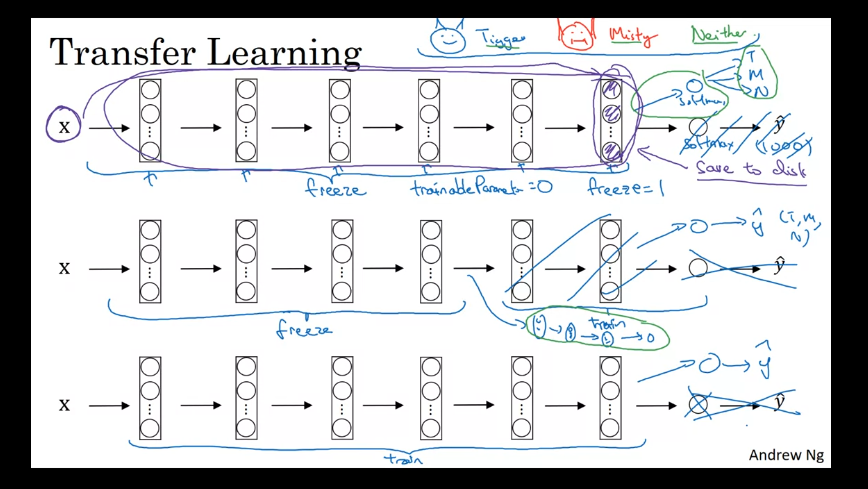 Transfer Learning
Tigger Misty Neither
T
M
N
x softmax softmax (1000) ŷ
save to disk
freeze trainableParameter=0 freeze=1
x ŷ (T, M, N)
ŷ
freeze train
x ŷ
ŷ
train
Andrew Ng